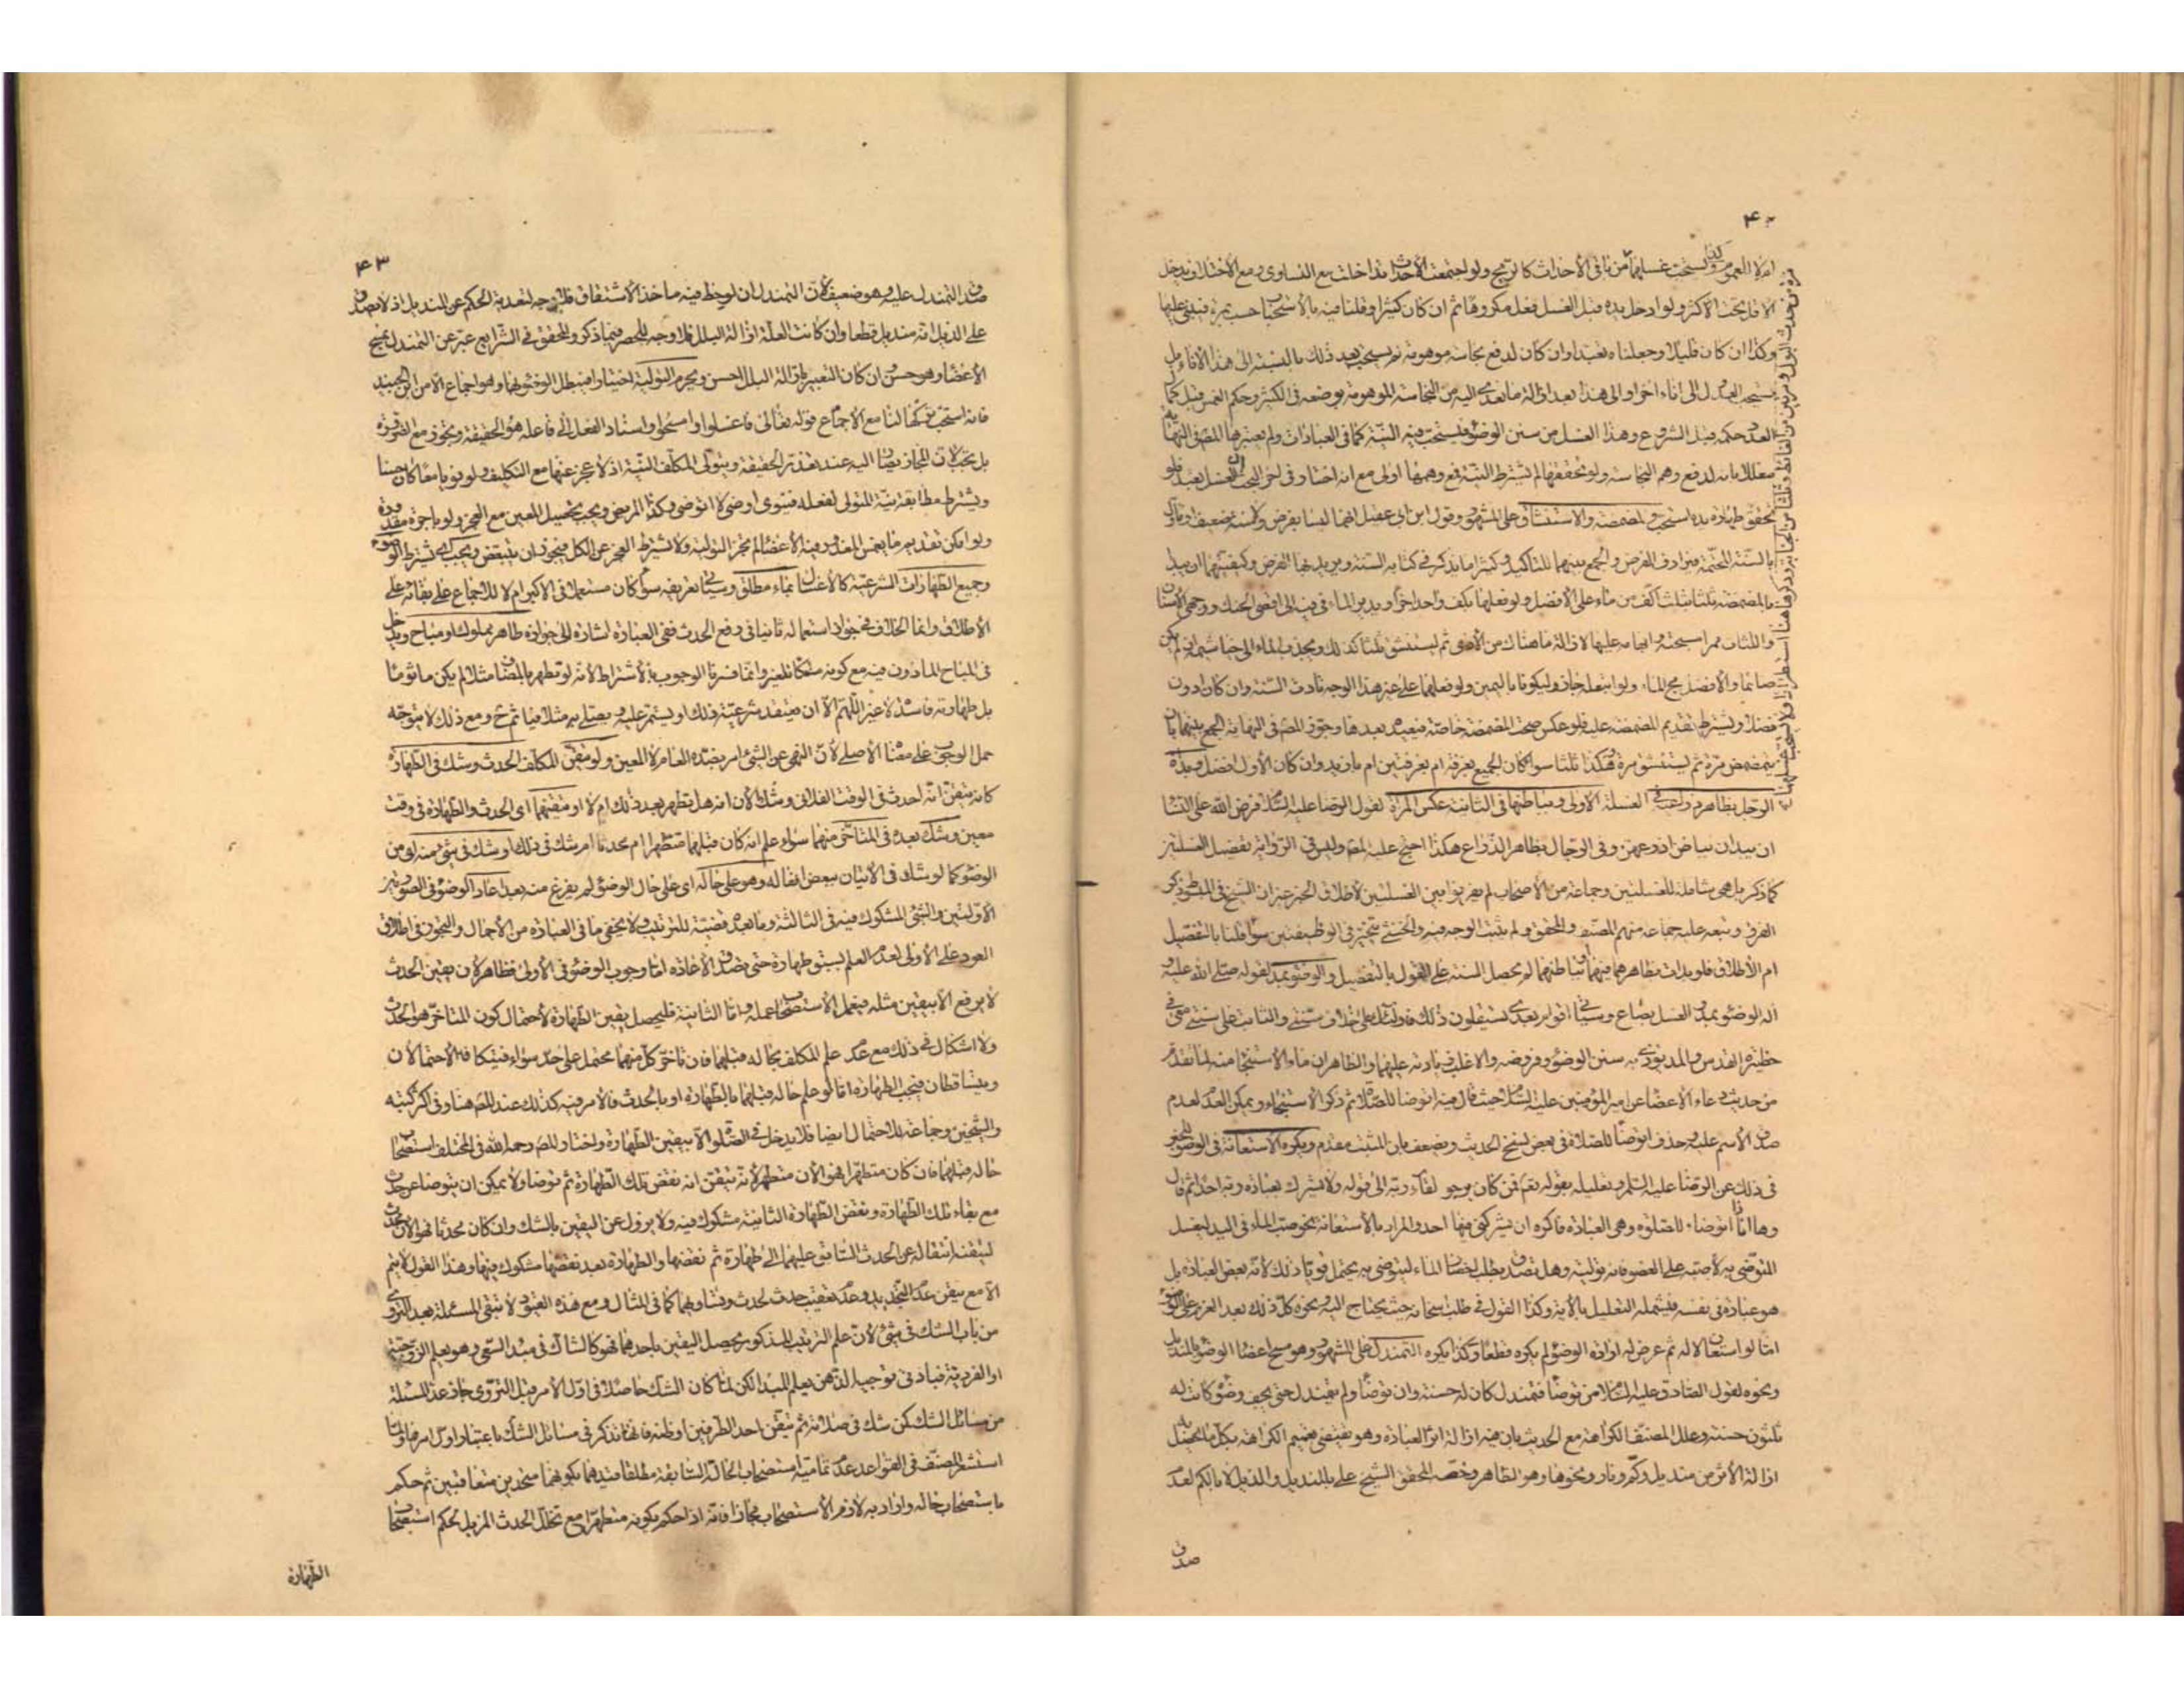 ام لا العموم ولذا يستحب غسلهما من باقي الأحداث كالريح ولو اجتمعت الأحداث تداخلت مع التساوي ومع الاختلاف يدخل
الأقل تحت الأكثر ولو ادخل يده قبل الغسل فعل مكروها ثم ان كان كثيرا وقلنا فيه بالاستحباب حسب بمرة فيبني عليها
وكذا ان كان قليلا وجعلناه تعبدا وان كان لدفع نجاسة موهومة لم يستحب بعد ذلك بالنسبة الى هذا الاناء بل
يستحب العدول الى اناء اخر او الى هذا بعد ازالة ما تعدى اليه من النجاسة الموهومة بوضعه في الكثير وحكم الغمس قبل كمال
العدد حكمه قبل الشروع وهذا الغسل من سنن الوضوء فيستحب فيه النية كما في العبادات ولم يعتبرها المصنف في النهاية
معللا بانه لدفع وهم النجاسة ولو تحققها لم تشترط النية فمع وهمها اولى مع انه اختار فيه ان الغسل تعبد فلو
تحقق طهارة يده استحب والمضمضة والاستنشاق على المشهور وقول ابن ابي عقيل انهما ليسا بفرض ولا سنة ضعيف ومأول
بالسنة المحتمة فيرادف الفرض والجمع بينهما للتأكيد وكثيرا ما يذكر في كتابه السنة ويريد بها الفرض وكيفيتهما ان يبدأ
بالمضمضة ثلثا بثلث اكف من ماء على الأفضل ولو فعلها بكف واحد اجزأ ويدير الماء في فيه الى اقصى الحنك ووجهي الاسنان
واللثات ممرا مسبحته وابهامه عليها لازالة ما هناك من الأذى ثم يستنشق ثلثا كذلك ويجذب الماء الى خياشيمه ان لم يكن
صائما والأفضل مج الماء ولو ابتلعه جاز وليكونا باليمين ولو فعلهما على غير هذا الوجه تأدت السنة وان كان ادون
فضلا ويشترط تقديم المضمضة عليه فلو عكس صحت المضمضة خاصة فيعيده بعدها وجوز المصنف في النهاية الجمع بينهما بان
يتمضمض مرة ثم يستنشق مرة وهكذا ثلثا سواء كان الجميع بغرفة ام بغرفتين ام بازيد وان كان الأول افضل وبدأة
الرجل بظاهر ذراعيه في الغسلة الاولى وبباطنهما في الثانية عكس المرأة لقول الرضا عليه السلام فرض الله على النساء
ان يبدأن بباطن اذرعهن وفي الرجال بظاهر الذراع هكذا احتج عليه المصنف وليس في الرواية تفصيل الغسلتين
كما ذكر بل هي شاملة للغسلتين وجماعة من الأصحاب لم يفرقوا بين الغسلتين لاطلاق الخبر غير ان الشيخ في المبسوط ذكر
الفرق وتبعه عليه جماعة منهم المصنف والمحقق ولم يثبت الوجه فيه والخنثى تتخير في الوظيفتين سواء قلنا بالتفصيل
ام الأطلاق فلو بدأت بظاهرهما فيهما او بباطنهما لم تحصل السنة على القول بالتفصيل والوضوء بمد لقوله صلى الله عليه و
آله الوضوء بمد والغسل بصاع وسيأتي اقوام بعدي يستقلون ذلك فاولئك على خلاف سنتي والثابت على سنتي معي في
حظيرة القدس والمد يؤدى به سنن الوضوء وفروضه والاغلب زيادته عليهما والظاهر ان ماء الاستنجاء منه لما تقدم
من حديث دعاء الأعضاء عن امير المؤمنين عليه السلام حيث قال فيه اتوضأ للصلاة ثم ذكر الاستنجاء ويمكن العدم لعدم
صدق الأسم عليه وحذف اتوضأ للصلاة في بعض نسخ الحديث ويضعف بان المثبت مقدم ويكره الاستعانة في الوضوء للخبر
في ذلك عن الرضا عليه السلام وتعليله بقوله تعالى فمن كان يرجو لقاء ربه الى قوله ولا يشرك بعبادة ربه احدا ثم قال
وها انا ذا اتوضأ للصلوة وهي العبادة فاكره ان يشركني فيها احد والمراد بالأستعانة نحو صب الماء في اليد ليغسل
المتوضي به لا صبه على العضو فانه تولية وهل تصدق بطلب احضار الماء ليتوضى به يحتمل قويا ذلك لأنه بعض العبادة بل
هو عبادة في نفسه فيشمله التعليل بالآية وكذا القول في طلب اسخانه حيث يحتاج اليه ونحوه كل ذلك بعد العزم على الوضوء
اما لو استعان لا له ثم عرض له ارادة الوضوء لم يكره قطعا وكذا يكره التمندل على المشهور وهو مسح اعضاء الوضوء بالمنديل
ونحوه لقول الصادق عليه السلام من توضأ فتمندل كان له حسنة وان توضأ ولم يتمندل حتى يجف وضوءه كانت له
ثلثون حسنة وعلل المصنف الكراهة مع الحديث بان فيه ازالة اثر العبادة وهو يقتضي تعميم الكراهة بكل ما يحصل به
ازالة الأثر من منديل وكم ونار ونحوها وهو الظاهر وخصه المحقق الشيخ علي بالمنديل والذيل لا بالكم لعدم
صدق
مرة من حدث البول ومرتين من الغائط وثلثا من الجنابة وذكرها هنا استطرادا ولا يستحب غسلهما
٤٣
صدق التمندل عليه وهو ضعيف لأن التمندل ان لوحظ فيه مأخذ الاشتقاق فلا وجه لتعدية الحكم عن المنديل اذ لا يصدق
على الذيل انه منديل قطعا وان كانت العلة ازالة البلل فلا وجه للحصر فيما ذكر والمحقق في الشرايع عبر عن التمندل بمسح
الأعضاء وهو حسن وان كان التعبير بازالة البلل احسن وتحرم التولية اختيارا فيبطل الوضوء بها وهو اجماع الا من ابن الجنيد
فانه استحب تركها لنا مع الأجماع قوله تعالى فاغسلوا وامسحوا واسناد الفعل الى فاعله هو الحقيقة وتجوز مع الضرورة
بل تجب لان المجاز يصار اليه عند تعذر الحقيقة ويتولى المكلف النية اذ لا عجز عنها مع التكليف ولو نويا معا كان حسنا
ويشترط مطابقة نية المتولي لفعله فينوي اوضي لا اتوضى وكذا المريض ويجب تحصيل المعين مع العجز ولو باجرة مقدورة
ولو امكن تقديم ما يغمس المعذور فيه الأعضاء لم تجز التولية ولا يشترط العجز عن الكل فيجوز ان يتبعض ويجب اي يشترط الوضوء
وجميع الطهارات الشرعية كالأغسال بماء مطلق وسيأتي تعريفه سواء كان مستعملا في الاكبر ام لا للاجماع على بقائه على
الأطلاق وانما الخلاف في جواز استعماله ثانيا في رفع الحدث ففي العبارة اشارة الى جوازه طاهر مملوك او مباح ويدخل
في المباح المأذون فيه مع كونه ملكا للغير وانما فسرنا الوجوب بالأشتراط لأنه لو تطهر بالمضاف مثلا لم يكن مأثوما
بل طهارته فاسدة لا غير اللهم الا ان يعتقد شرعية ذلك او يستمر عليه ويصلي به مثلا فيأثم ح ومع ذلك لا يتوجه
حمل الوجوب على معناه الأصلي لأن النهي عن الشئ امر بضده العام لا المعين ولو تيقن المكلف الحدث وشك في الطهارة
كأنه يتيقن انه احدث في الوقت الفلاني وشك الآن انه هل تطهر بعد ذلك ام لا او تيقنهما اي الحدث والطهارة في وقت
معين وشك بعده في المتأخر منهما سواء علم انه كان قبلهما متطهرا ام محدثا ام شك في ذلك او شك في شئ منه اي من
الوضوء كما لو شك في الأتيان ببعض افعاله وهو على حاله اي على حال الوضوء لم يفرغ منه بعد اعاد الوضوء في الصورتين
الأوليين والشئ المشكوك فيه في الثالثة وما بعده قضية للترتيب ولا يخفى ما في العبارة من الأجمال والتجوز في اطلاق
العود على الأولى لعدم العلم بسبق طهارة حتى يصدق الأعادة اما وجوب الوضوء في الأولى فظاهر لان يقين الحدث
لا يرفع الا بيقين مثله فيعمل الأستصحاب عمله واما الثانية فليحصل يقين الطهارة لأحتمال كون المتأخر هو الحدث
ولا اشكال في ذلك مع عدم علم المكلف بحاله قبلهما فان تأخر كل منهما محتمل على حد سواء فيتكافأ الاحتمالان
ويتساقطان فتجب الطهارة اما لو علم حاله قبلهما بالطهارة او بالحدث فالأمر فيه كذلك عند المصنف هنا وفي اكثر كتبه
والشيخين وجماعة للاحتمال ايضا فلا يدخل في الصلوة الا بيقين الطهارة واختار المصنف رحمه الله في المختلف استصحاب
حاله قبلهما فان كان متطهرا فهو الآن متطهر لأنه تيقن انه نقض تلك الطهارة ثم توضأ ولا يمكن ان يتوضأ عن حدث
مع بقاء تلك الطهارة ونقض الطهارة الثانية مشكوك فيه ولا يزول عن اليقين بالشك وان كان محدثا فهو الآن محدث
لتيقنه انتقاله عن الحدث السابق عليهما الى طهارة ثم نقضها والطهارة بعد نقضها مشكوك فيها وهذا القول لا يتم
الا مع تيقن عدم التجديد وعدم تعقيب حدث لحدث وتساويهما كما في المثال ومع هذه القيود لا تبقى المسئلة بعد التروي
من باب الشك في شئ لأن علم الترتيب المذكور يحصل اليقين باحدهما فهو كالشاك في مبدأ السعي وهو يعلم الزوجية
او الفردية فبادنى توجيه الذهن يعلم المبدأ لكن لما كان الشك حاصلا في اول الأمر قبل التروي جاز عد المسئلة
من مسائل الشك كمن شك في صلاته ثم تيقن احد الطرفين او ظنه فانها تذكر في مسائل الشك باعتبار اول امرها ولما
استشعر المصنف في القواعد عدم تمامية استصحاب الحالة السابقة مطلقا قيدهما بكونهما متحدين متعاقبين ثم حكم
باستصحاب حاله واراد به لازم الأستصحاب مجازا فانه اذا حكم بكونه متطهرا مع تخلل الحدث المزيل لحكم استصحاب
الطهارة